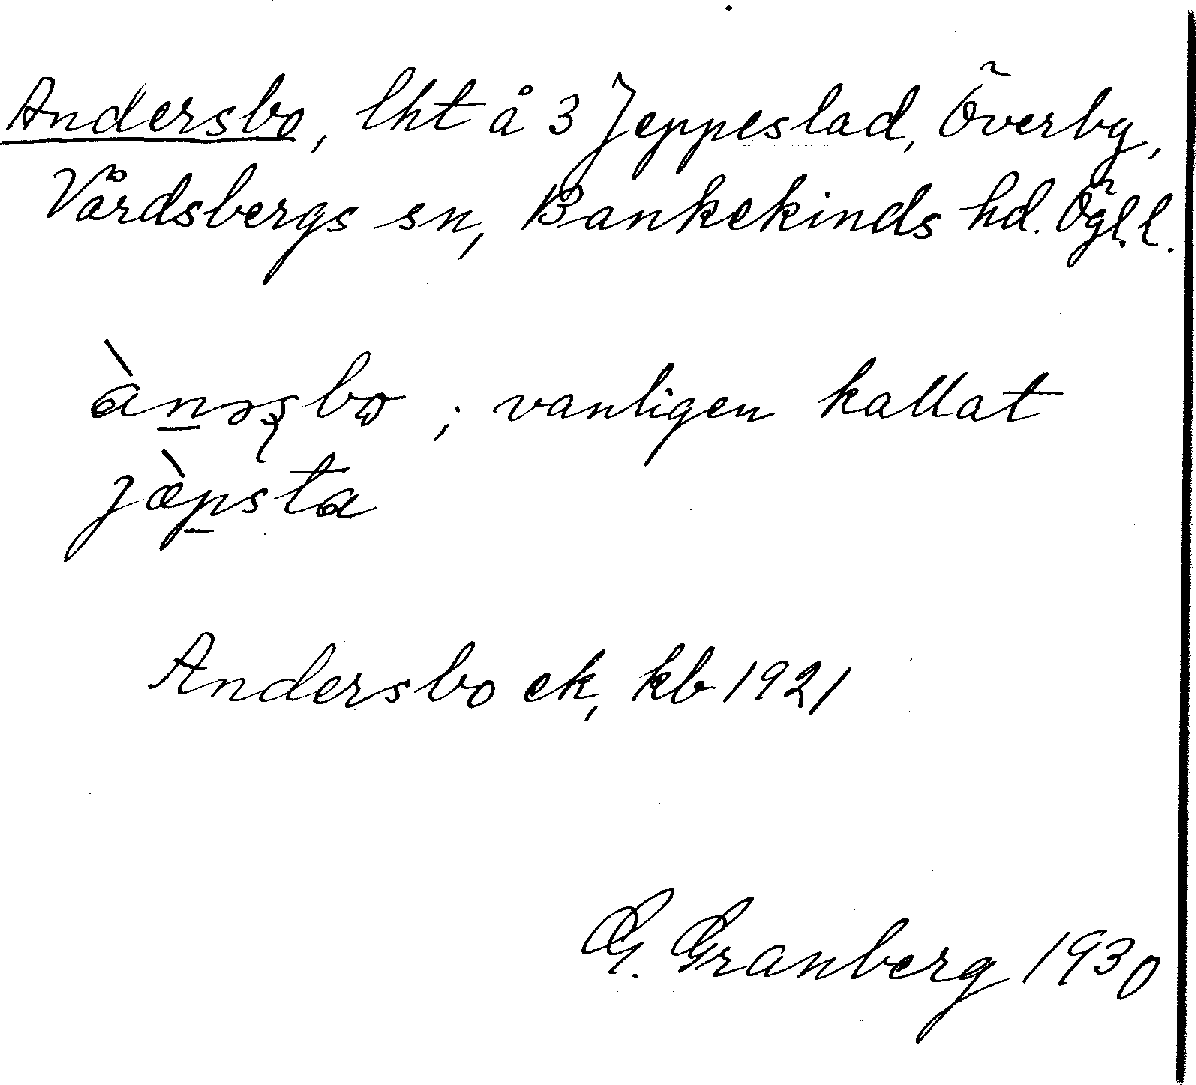 Andersbo, lht å 3 Jeppeslad, Överby,
Vårdsbergs sn, Bankekinds hd. Ögl. l.
; vanligen kallat
jæ̀psta
Andersbo ek, kb 1921
G. Granberg 1930